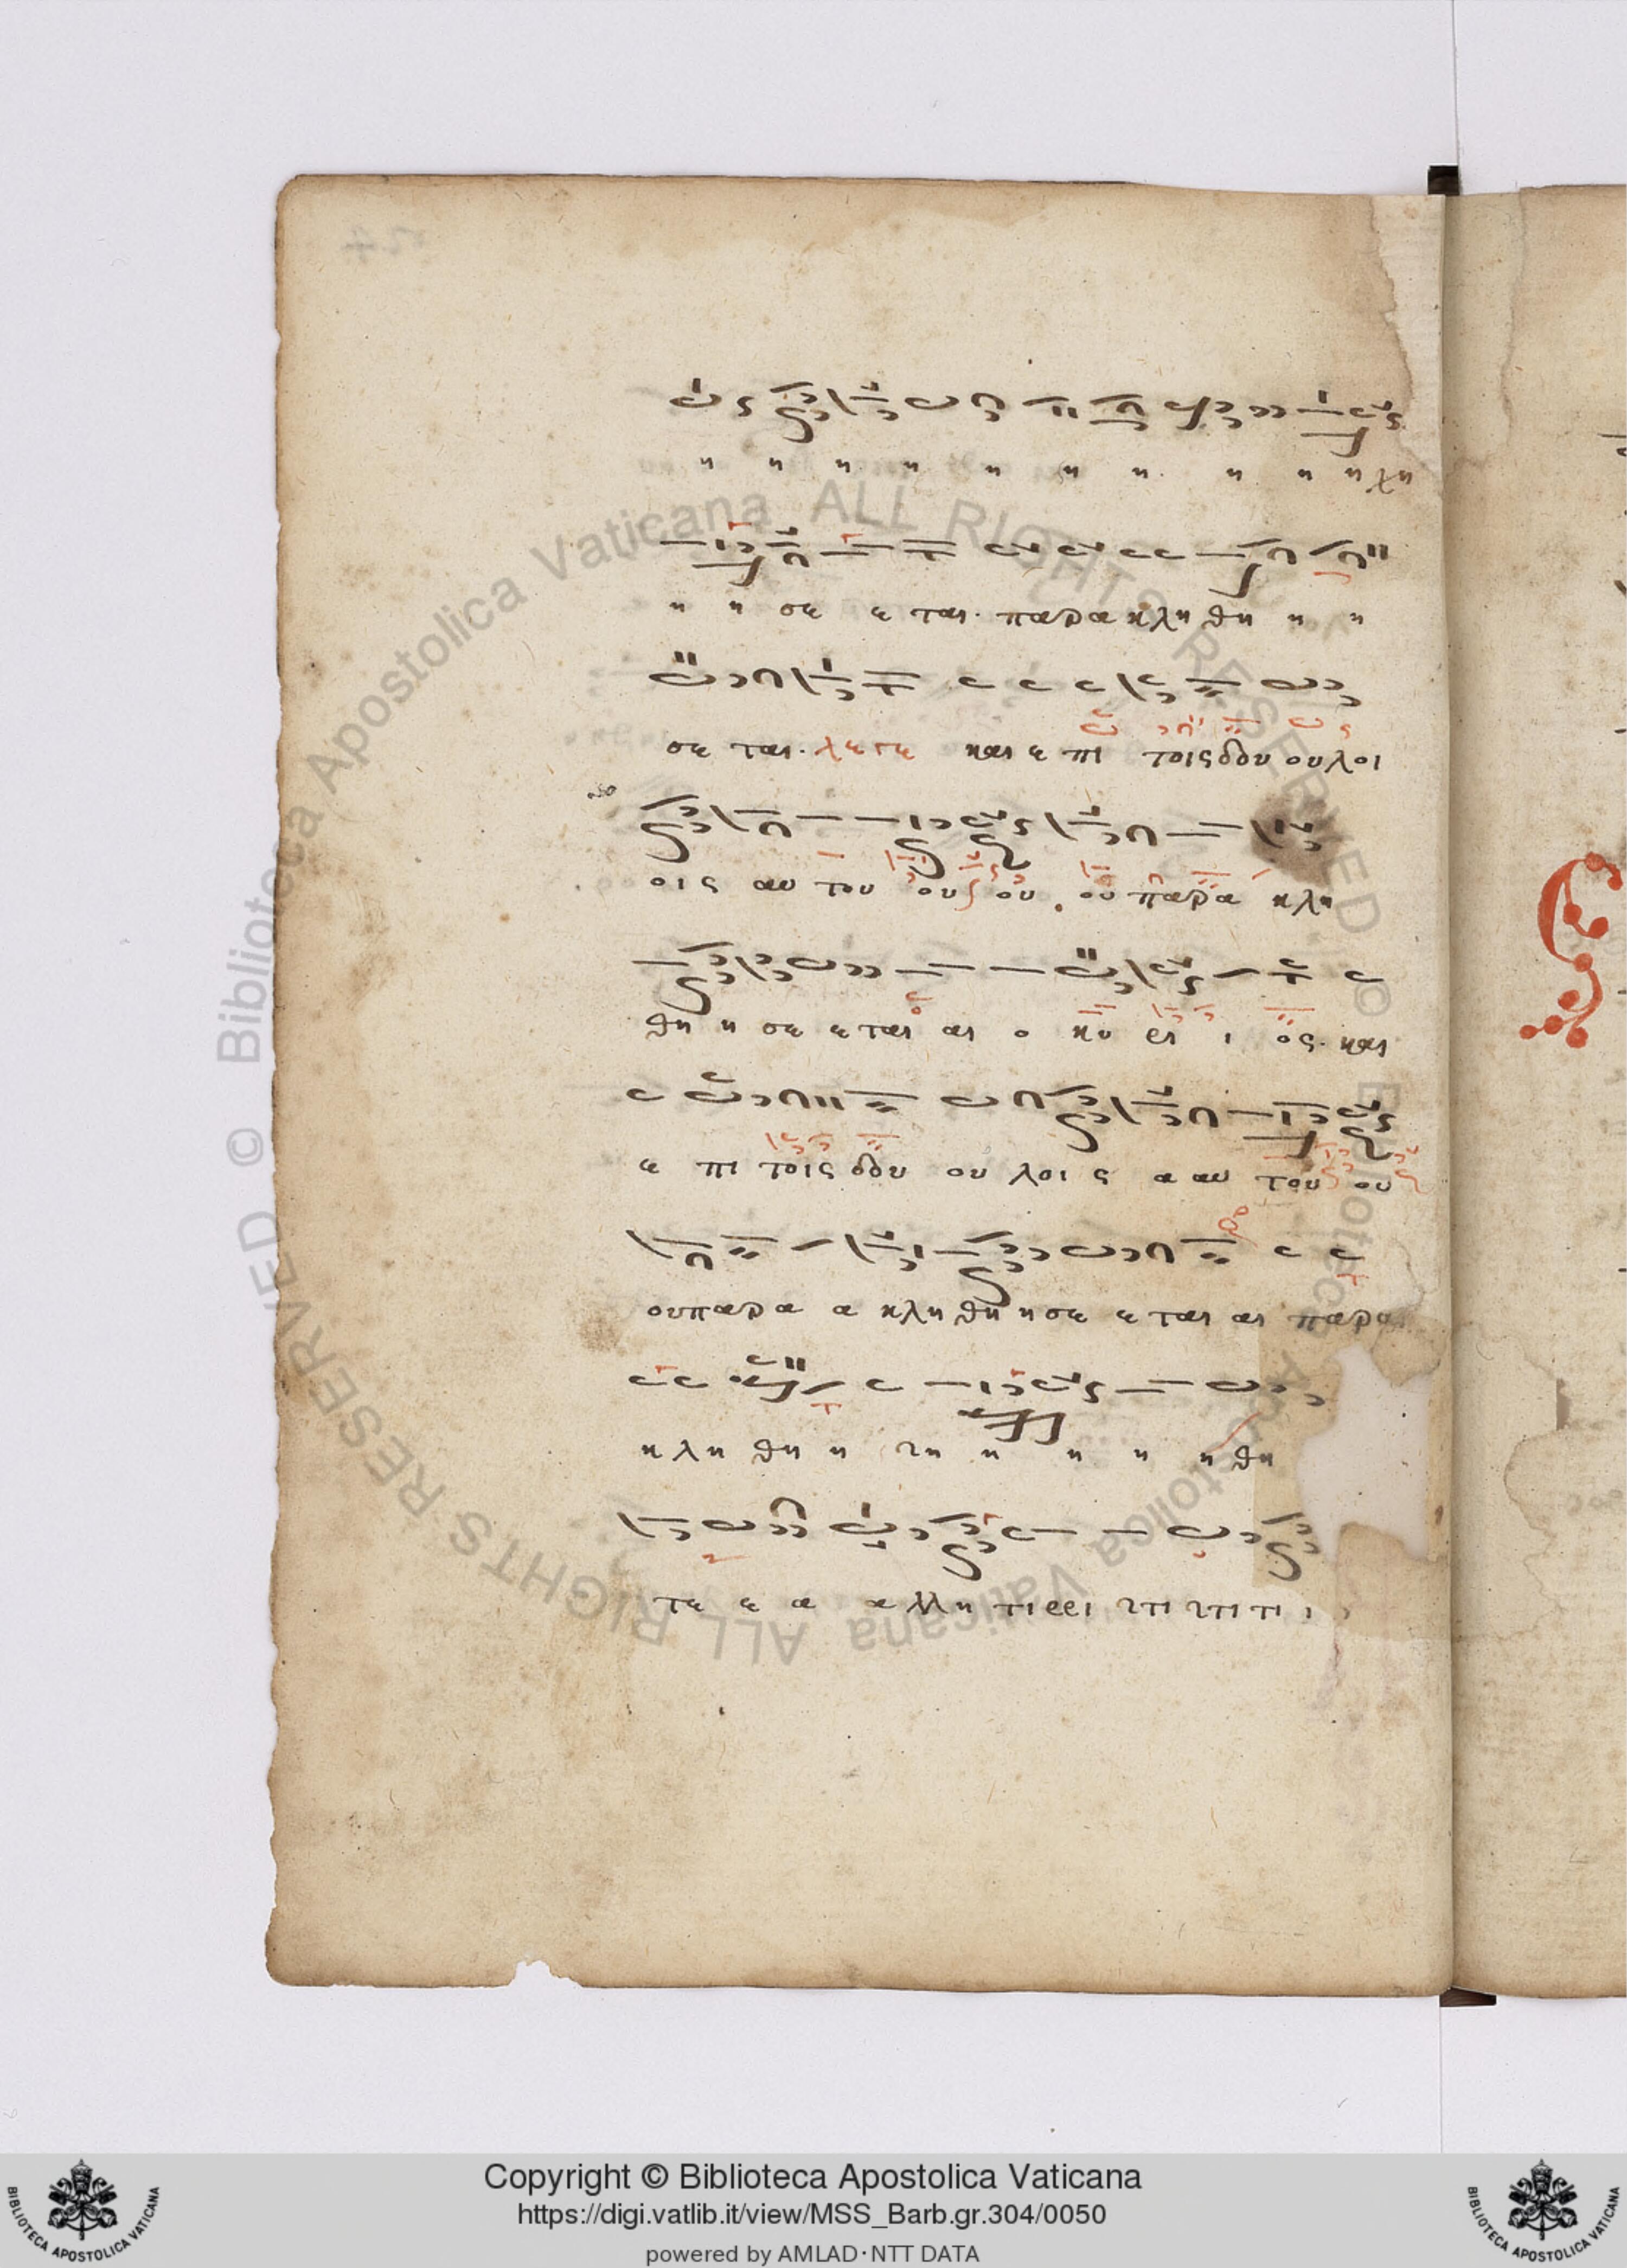 η η η η η η η η η η χη
η η σε ε ται· παρακληθη η η
σε ται· λεγε και ε πι τοις δου ουλοι
οις αυ του ου ου ου παρα κλη
θη η σε ε ται αι ο κυ ρι ι ος· και
ε πι τοις δου ου λοι ς α αυ του ου
ου παρα α κλη θη η σε ε ται αι παρα
κλη θη η η η η η θη
τε ε α α λλη τι ρρι τι τι τι ι
Copyright © Biblioteca Apostolica Vaticana
https://digi.vatlib.it/view/MSS_Barb.gr.304/0050
powered by AMLAD·NTT DATA
BIBLIOTECA APOSTOLICA VATICANA
BIBLIOTECA APOSTOLICA VATICANA
© Biblioteca Apostolica Vaticana ALL RIGHTS RESERVED © Biblioteca Apostolica Vaticana ALL RIGHTS RESERVED